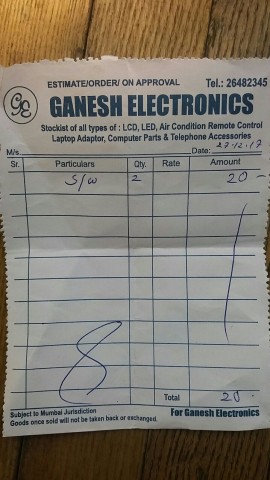 ESTIMATE/ORDER/ ON APPROVAL Tel.: 26482345
GE GANESH ELECTRONICS
Stockist of all types of : LCD, LED, Air Condition Remote Control
Laptop Adaptor, Computer Parts & Telephone Accessories
M/s. Date: 27.12.17
Sr. Particulars Qty. Rate Amount
S/W 2 20 -
Total 20.
Subject to Mumbai Jurisdiction
Goods once sold will not be taken back or exchanged. For Ganesh Electronics